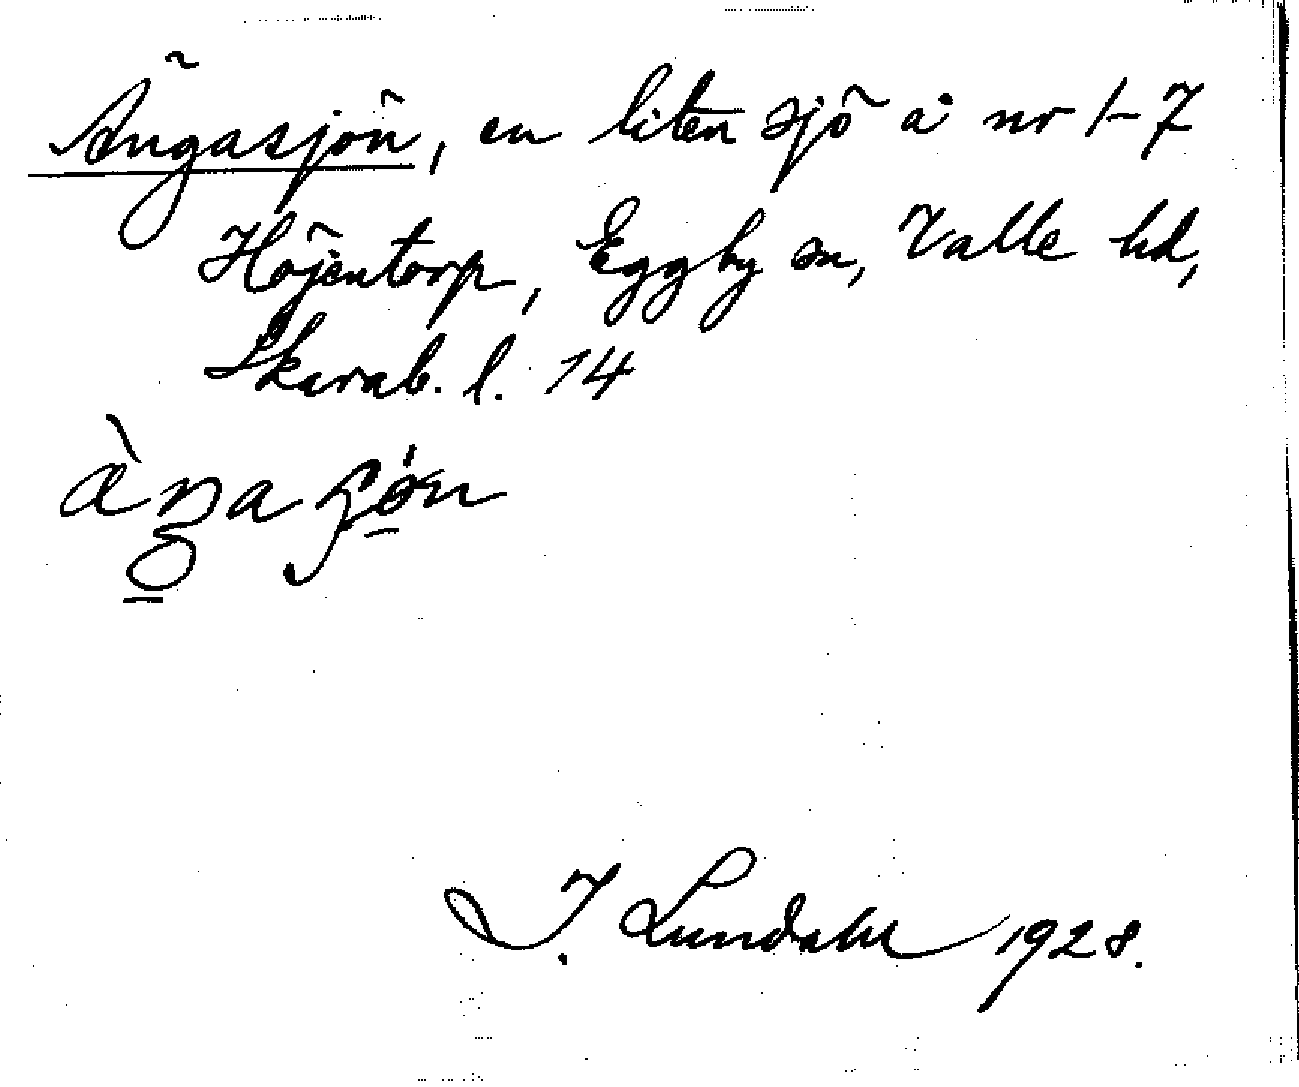 Ängasjön, en liten sjö å nr 1-7
Höjentorp, Eggby sn, Valle hd,
Skarab. l. 14
I. Lundahl 1928.